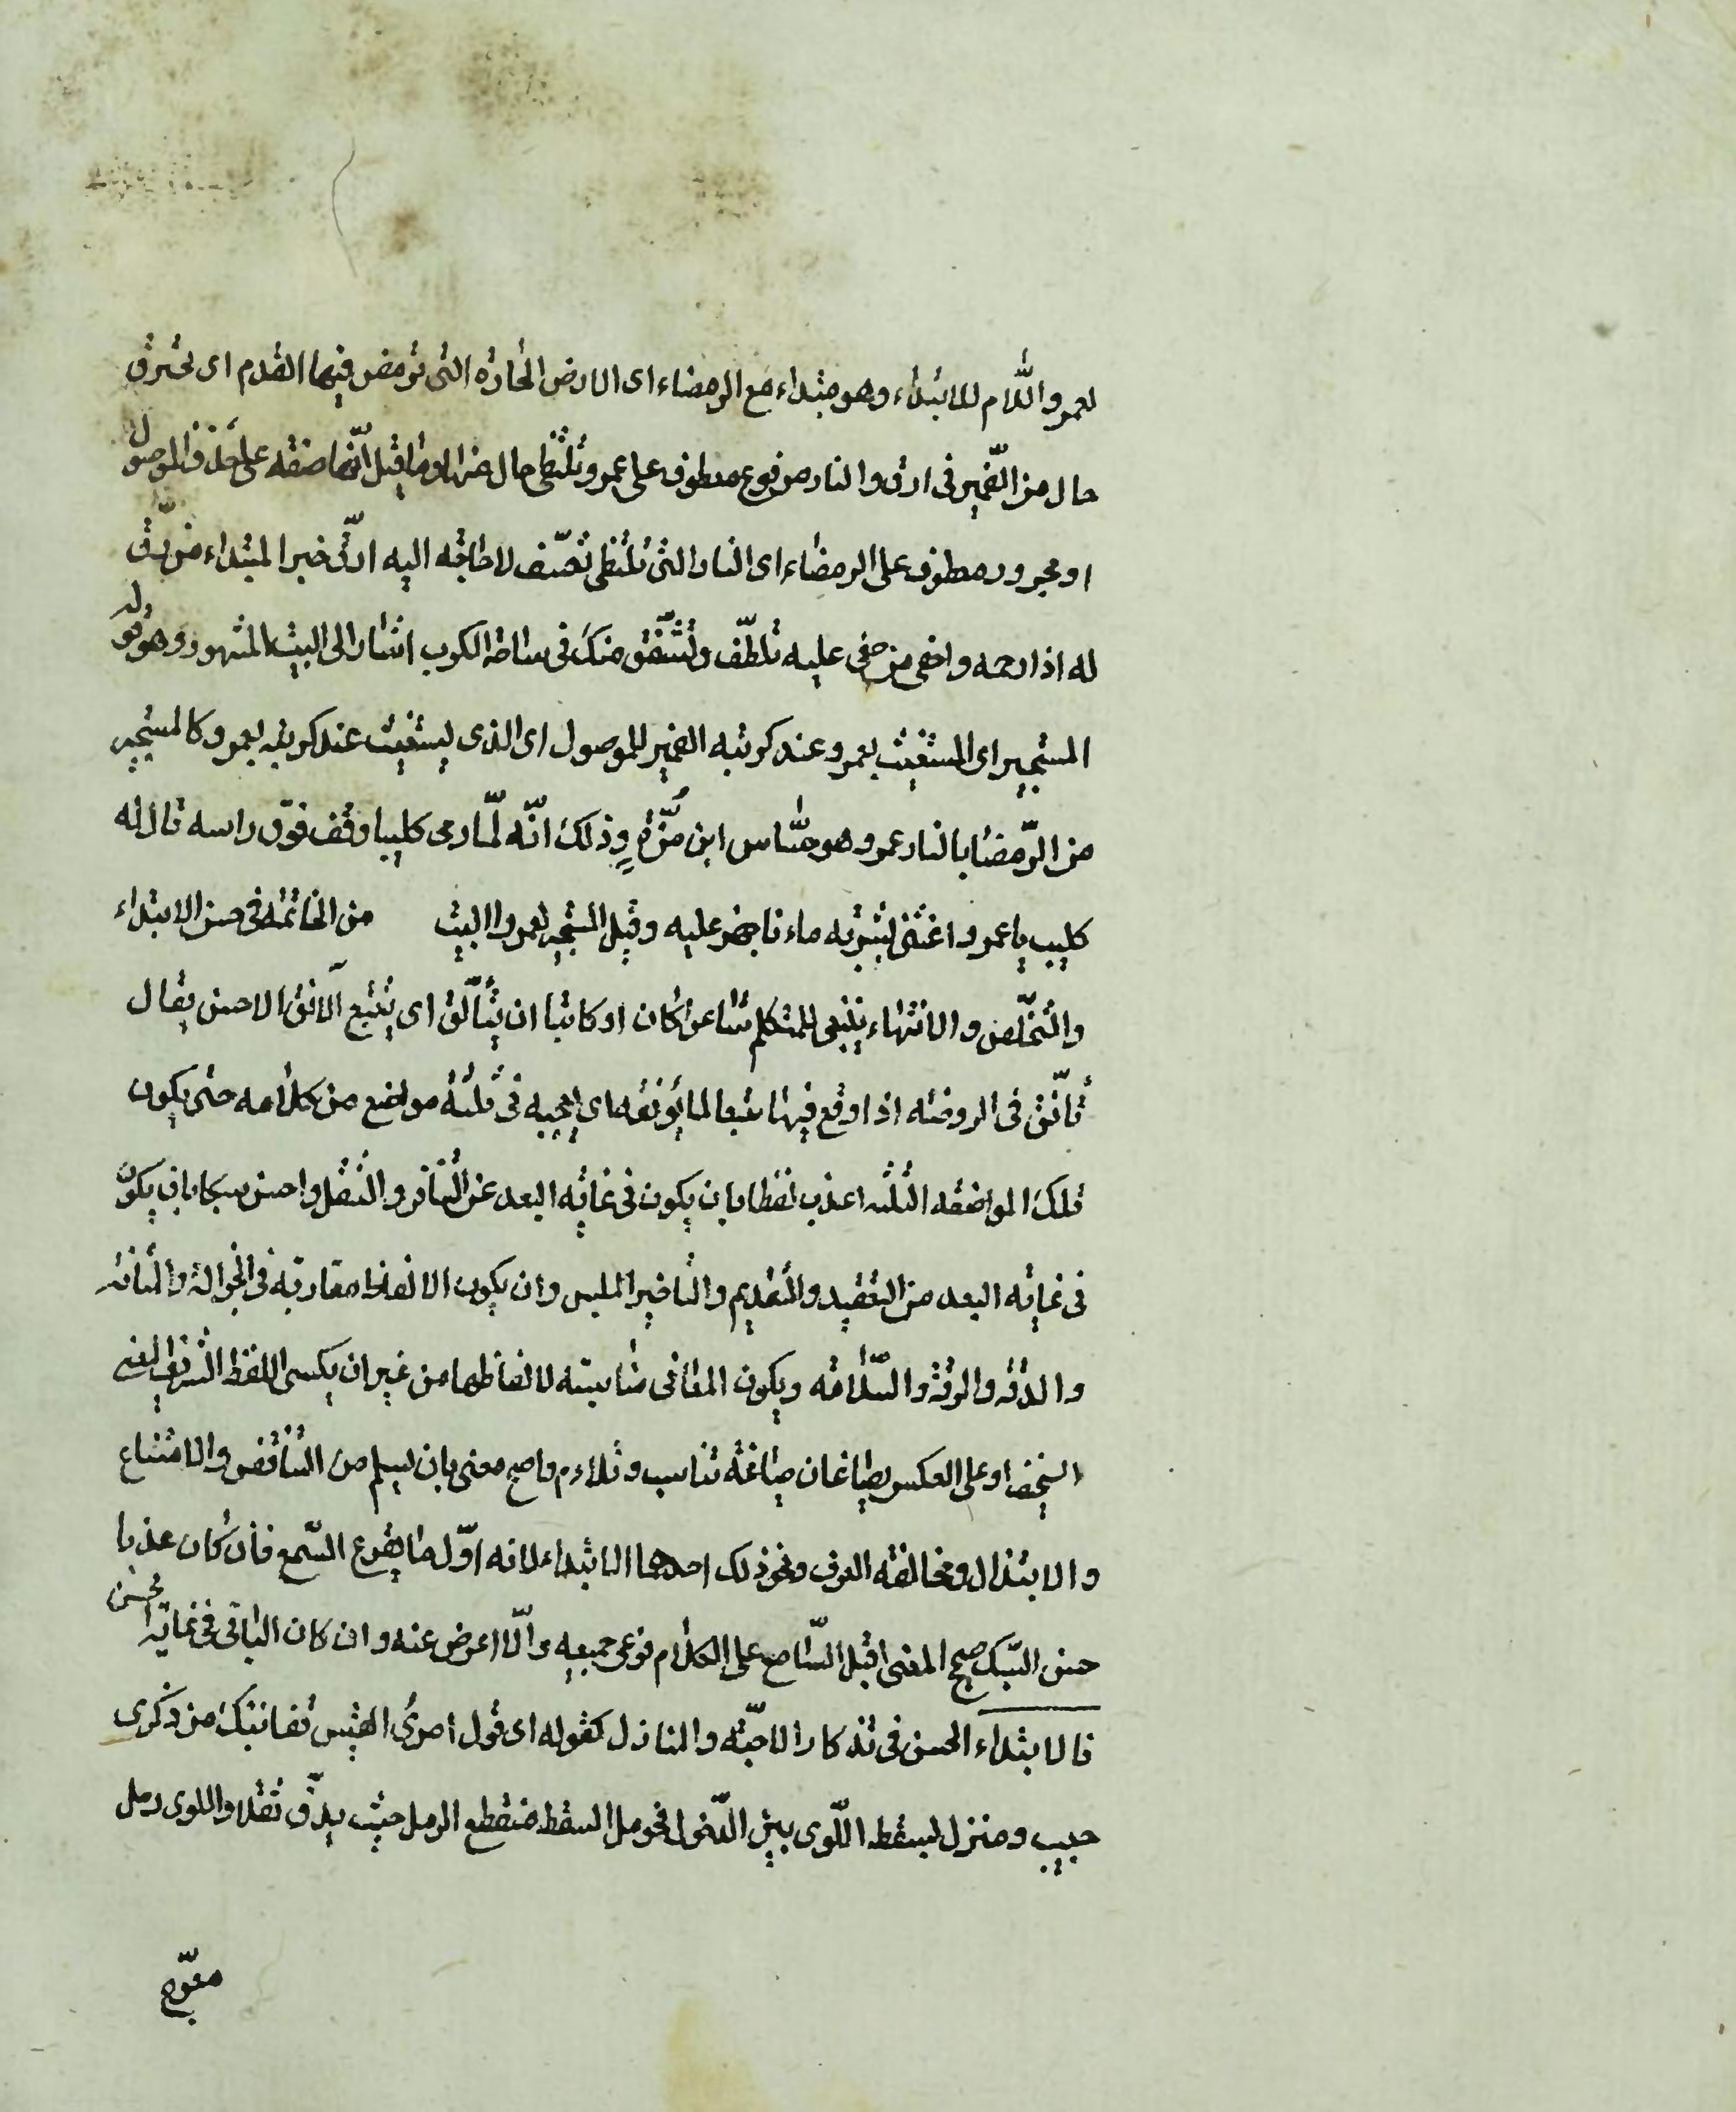 لعمرو اللّام للابتداء وهو مبتداء مع الرمضاء اى الارض الحارة التى ترمض فيها القدم اى تحترق
حال من الضّمير فى ارق والنار مرفوع معطوف على عمرو وتلتظى حال منها وما قيل انّها صفة على حذف الموصول
او مجرور معطوف على الرمضاء اى النار التى تلتظى تعسّف لا حاجة اليه ارقّ خبر المبتداء من رقّ
له اذا رحمه واحفى من حفى عليه تلطّف وتشفّق منك فى ساعة الكرب اشار الى البيت المشهور وهو قوله
المستجير اى المستغيث بعمرو عند كربته الضمير للموصول اى الذى يستغيث عند كربته بعمرو كالمستجير
من الرّمضا بالنار عمرو هو جسّاس ابن مرّة وذلك انّه لمّا رمى كليبا وقف فوق راسه قال له
كليب يا عمرو اغثنى بشربة ماء فاجهز عليه وقيل المستجير بعمرو البيت من الخاتمة فى حسن الابتداء
والتخلّص والانتهاء ينبغى للمتكلم شاعرا كان او كاتبا ان يتأنّق اى يتتبع الآنق الاحسن يقال
تأنّق فى الروضة اذا وقع فيها متتبعا لما يونقه اى يعجبه فى ثلثة مواضع من كلامه حتى يكون
تلك المواضعه الثلثه اعذب لفظا بان يكون فى غاية البعد عن التنافر والثقل واحسن سبكا بان يكون
فى غاية البعد من التعقيد والتقديم والتاخير الملبس وان يكون الالفاظ مقاربة فى الجزالة والمتانة
والدقه والرقة والسّلامة ويكون المعانى مناسبة لالفاظها من غير ان يكسى اللفظ الشريف المعنى
السخيف او على العكس بل يصاغان صياغة تناسب وتلاءم واصح معنى بان يسلم من التناقض والامتناع
والابتذال ومخالفة العرف ونحو ذلك احدها الابتداء لانه اوّل ما يقرع السّمع فان كان عذبا
حسن السّبك صحيح المعنى اقبل السّامع على الكلام فوعى جميعه والّا اعرض عنه وان كان الباقى فى غاية الحسن
فالابتداء الحسن فى تذكار الاحبّة والمنازل كقوله اى قول امرئ القيس قفا نبك من ذكرى
حبيب ومنزل بسقط اللّوى بين الدّخول فحومل السقط منقطع الرمل حيث يدقّ ثقلا واللوى رمل
معوّج